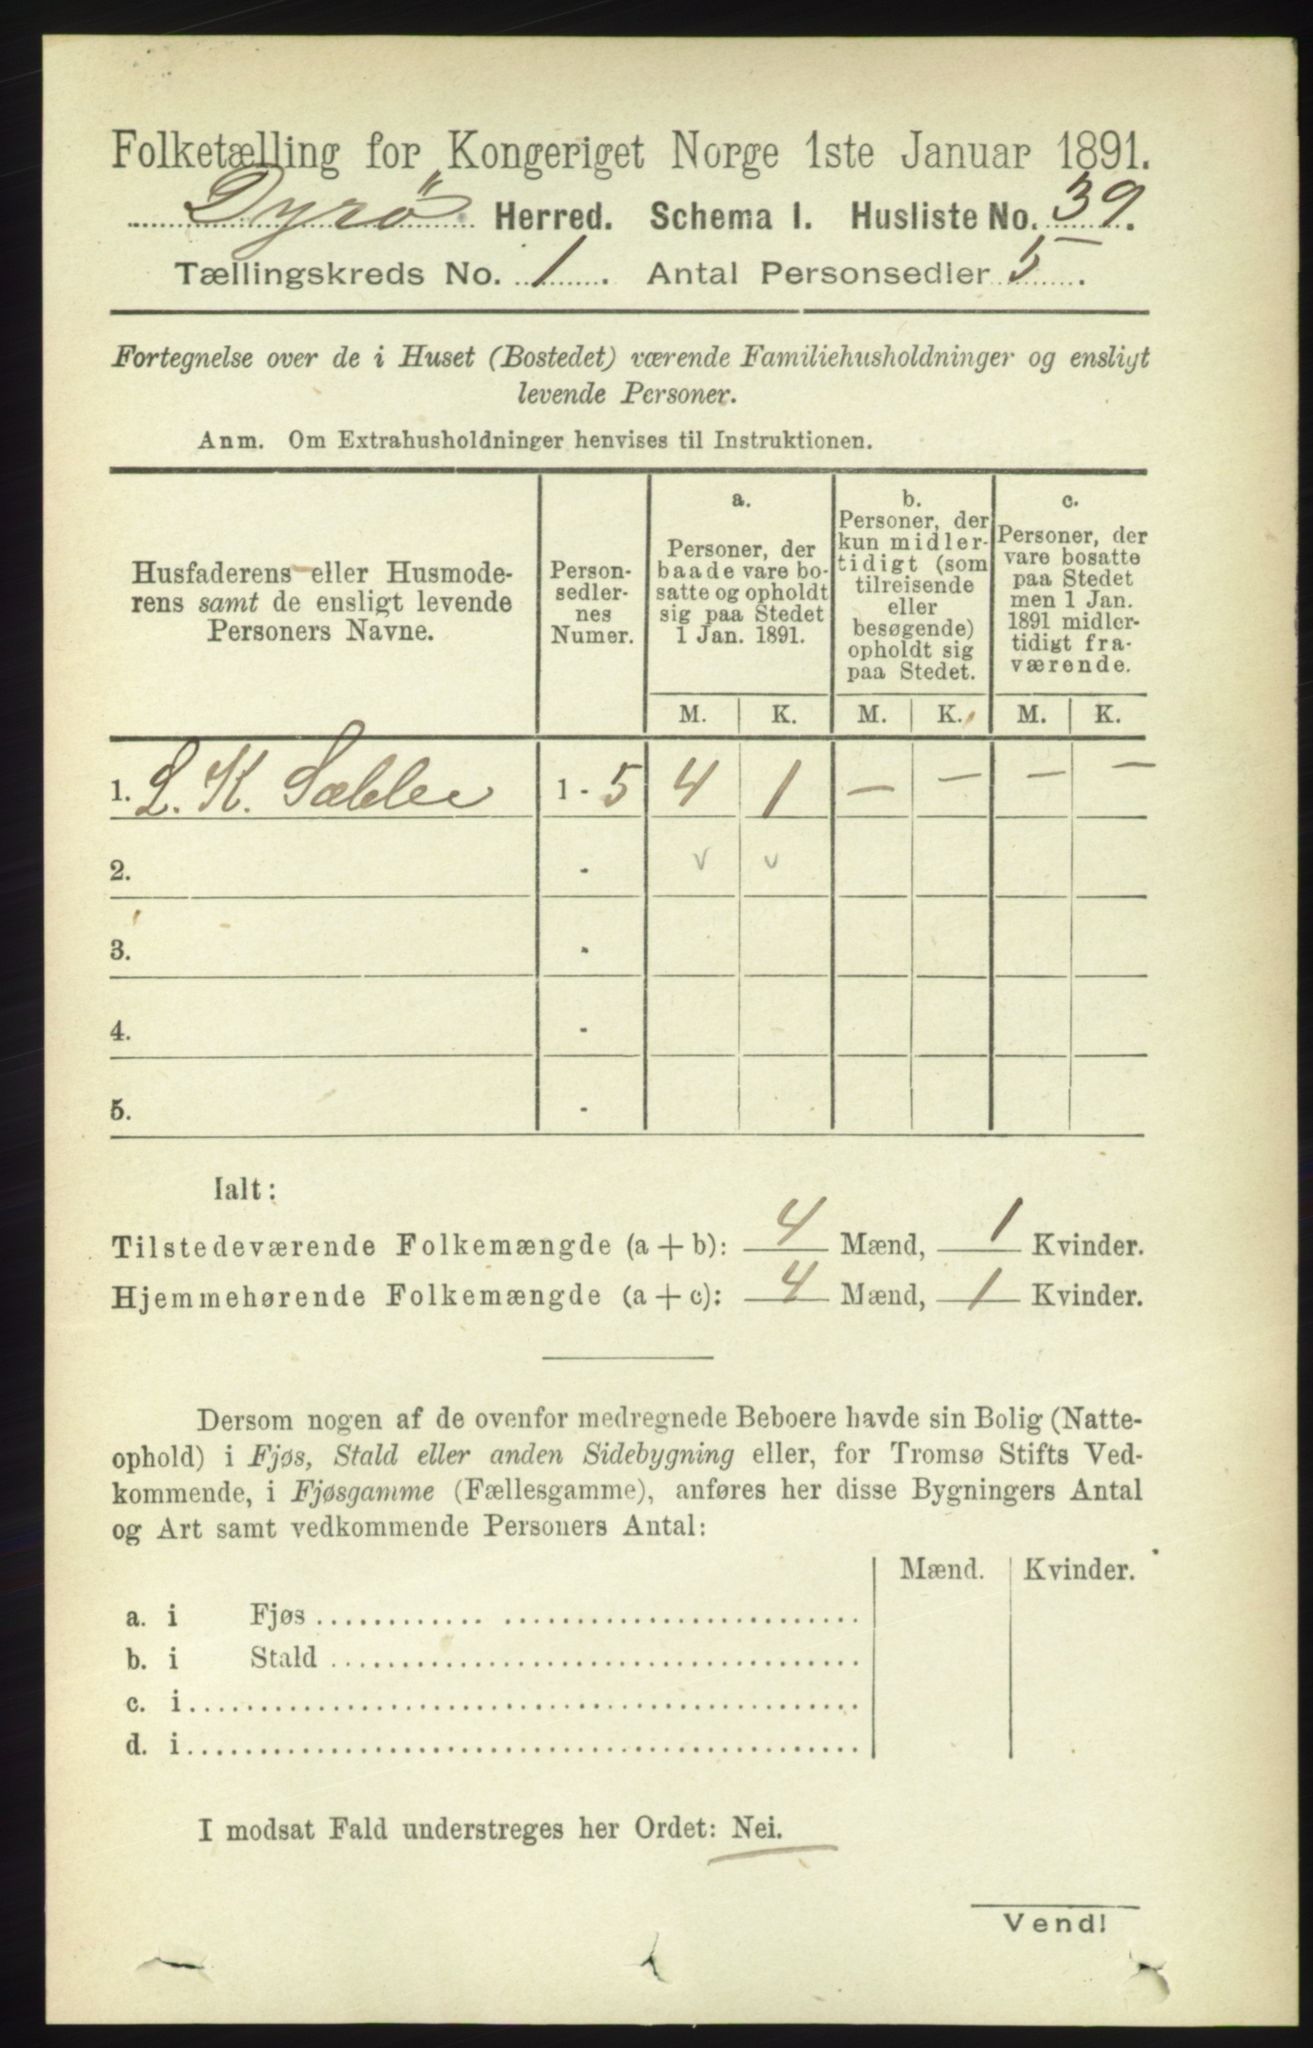 Folketælling for Kongeriget Norge 1ste Januar 1891.
Dyrö Herred. Schema I. Husliste No. 39.
Tællingskreds No. 1. Antal Personsedler 5.
Fortegnelse over de i Huset (Bostedet) værende Familiehusholdninger og ensligt
levende Personer.
Anm. Om Extrahusholdninger henvises til Instruktionen.
Husfaderens eller Husmode-
rens samt de ensligt levende
Personers Navne.
Person-
sedler-
nes
Numer.
a.
Personer, der
baade vare bo-
satte og opholdt
sig paa Stedet
1 Jan. 1891.
b.
Personer, der
kun midler-
tidigt (som
tilreisende
eller
besøgende)
opholdt sig
paa Stedet.
c.
Personer, der
vare bosatte
paa Stedet
men 1 Jan.
1891 midler-
tidigt fra-
værende.
M. K. M. K. M. K.
1. L. K. 1 - 5 4 1 — — — —
2. - v v
3. -
4. -
5. -
Ialt:
Tilstedeværende Folkemængde (a + b): 4 Mænd, 1 Kvinder.
Hjemmehørende Folkemængde (a + c): 4 Mænd, 1 Kvinder.
Dersom nogen af de ovenfor medregnede Beboere havde sin Bolig (Natte-
ophold) i Fjøs, Stald eller anden Sidebygning eller, for Tromsø Stifts Ved-
kommende, i Fjøsgamme (Fællesgamme), anføres her disse Bygningers Antal
og Art samt vedkommende Personers Antal:
Mænd. Kvinder.
a. i Fjøs
b. i Stald
c. i
d. i
I modsat Fald understreges her Ordet: Nei.
Vend!